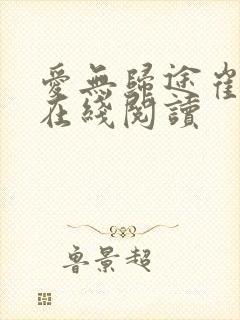 愛無歸途崔
在綫閱讀
魯景超